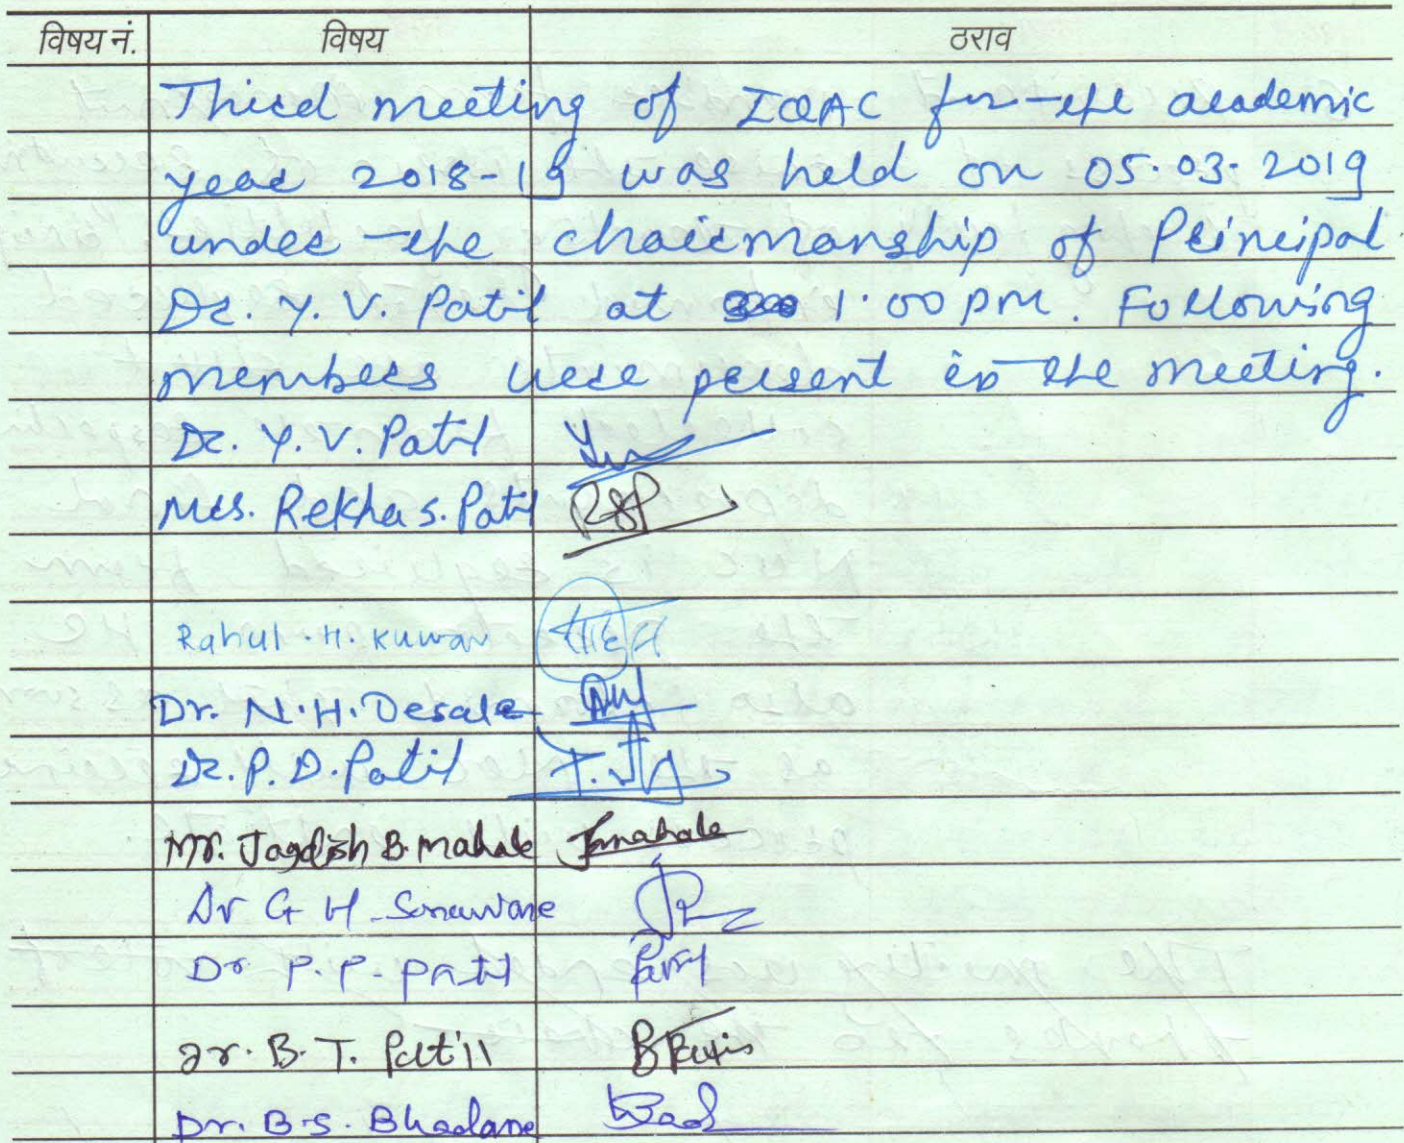 विषय नं. विषय ठराव
Third meeting of IQAC for the academic
year 2018-19 was held on 05.03.2019
under the chairmanship of Principal
Dr. Y. V. Patil at 1.00 pm. Following
members were persent in the meeting.
Dr. Y. V. Patil
Mrs. Rekha S. Patil RSP
Rahul. H. Kuwar
Dr. N. H. Desale
Dr. P. D. Patil
Mr. Jagdish B. Mahale Jmahale
Dr G H Sonawane
Dr P. P. Patil
Dr. B. T. Patil
Dr. B. S. Bhadane